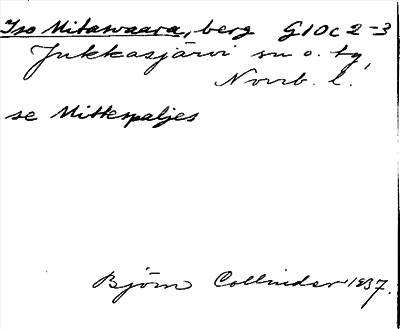 Iso Mitawaara, berg G10c2-3
Jukkasjärvi sn o. tg,
Norrb. l.
se Mittespaljes
Björn Collinder 1937.